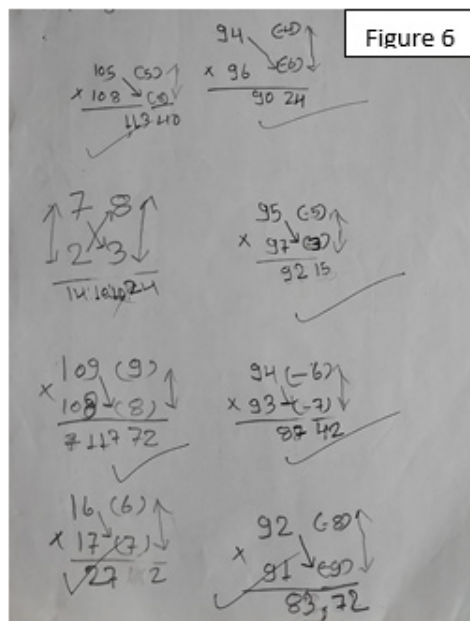 Figure 6
105 (5)
× 108 (8)
113 40
94 (-4)
× 96 (-6)
90 24
7 8
2 3
14 24
95 (-5)
× 97 (-3)
92 15
109 (9)
× 108 (8)
117 72
94 (-6)
× 93 (-7)
87 42
16 (6)
× 17 (7)
27 2
92 (-8)
× 91 (-9)
83,72